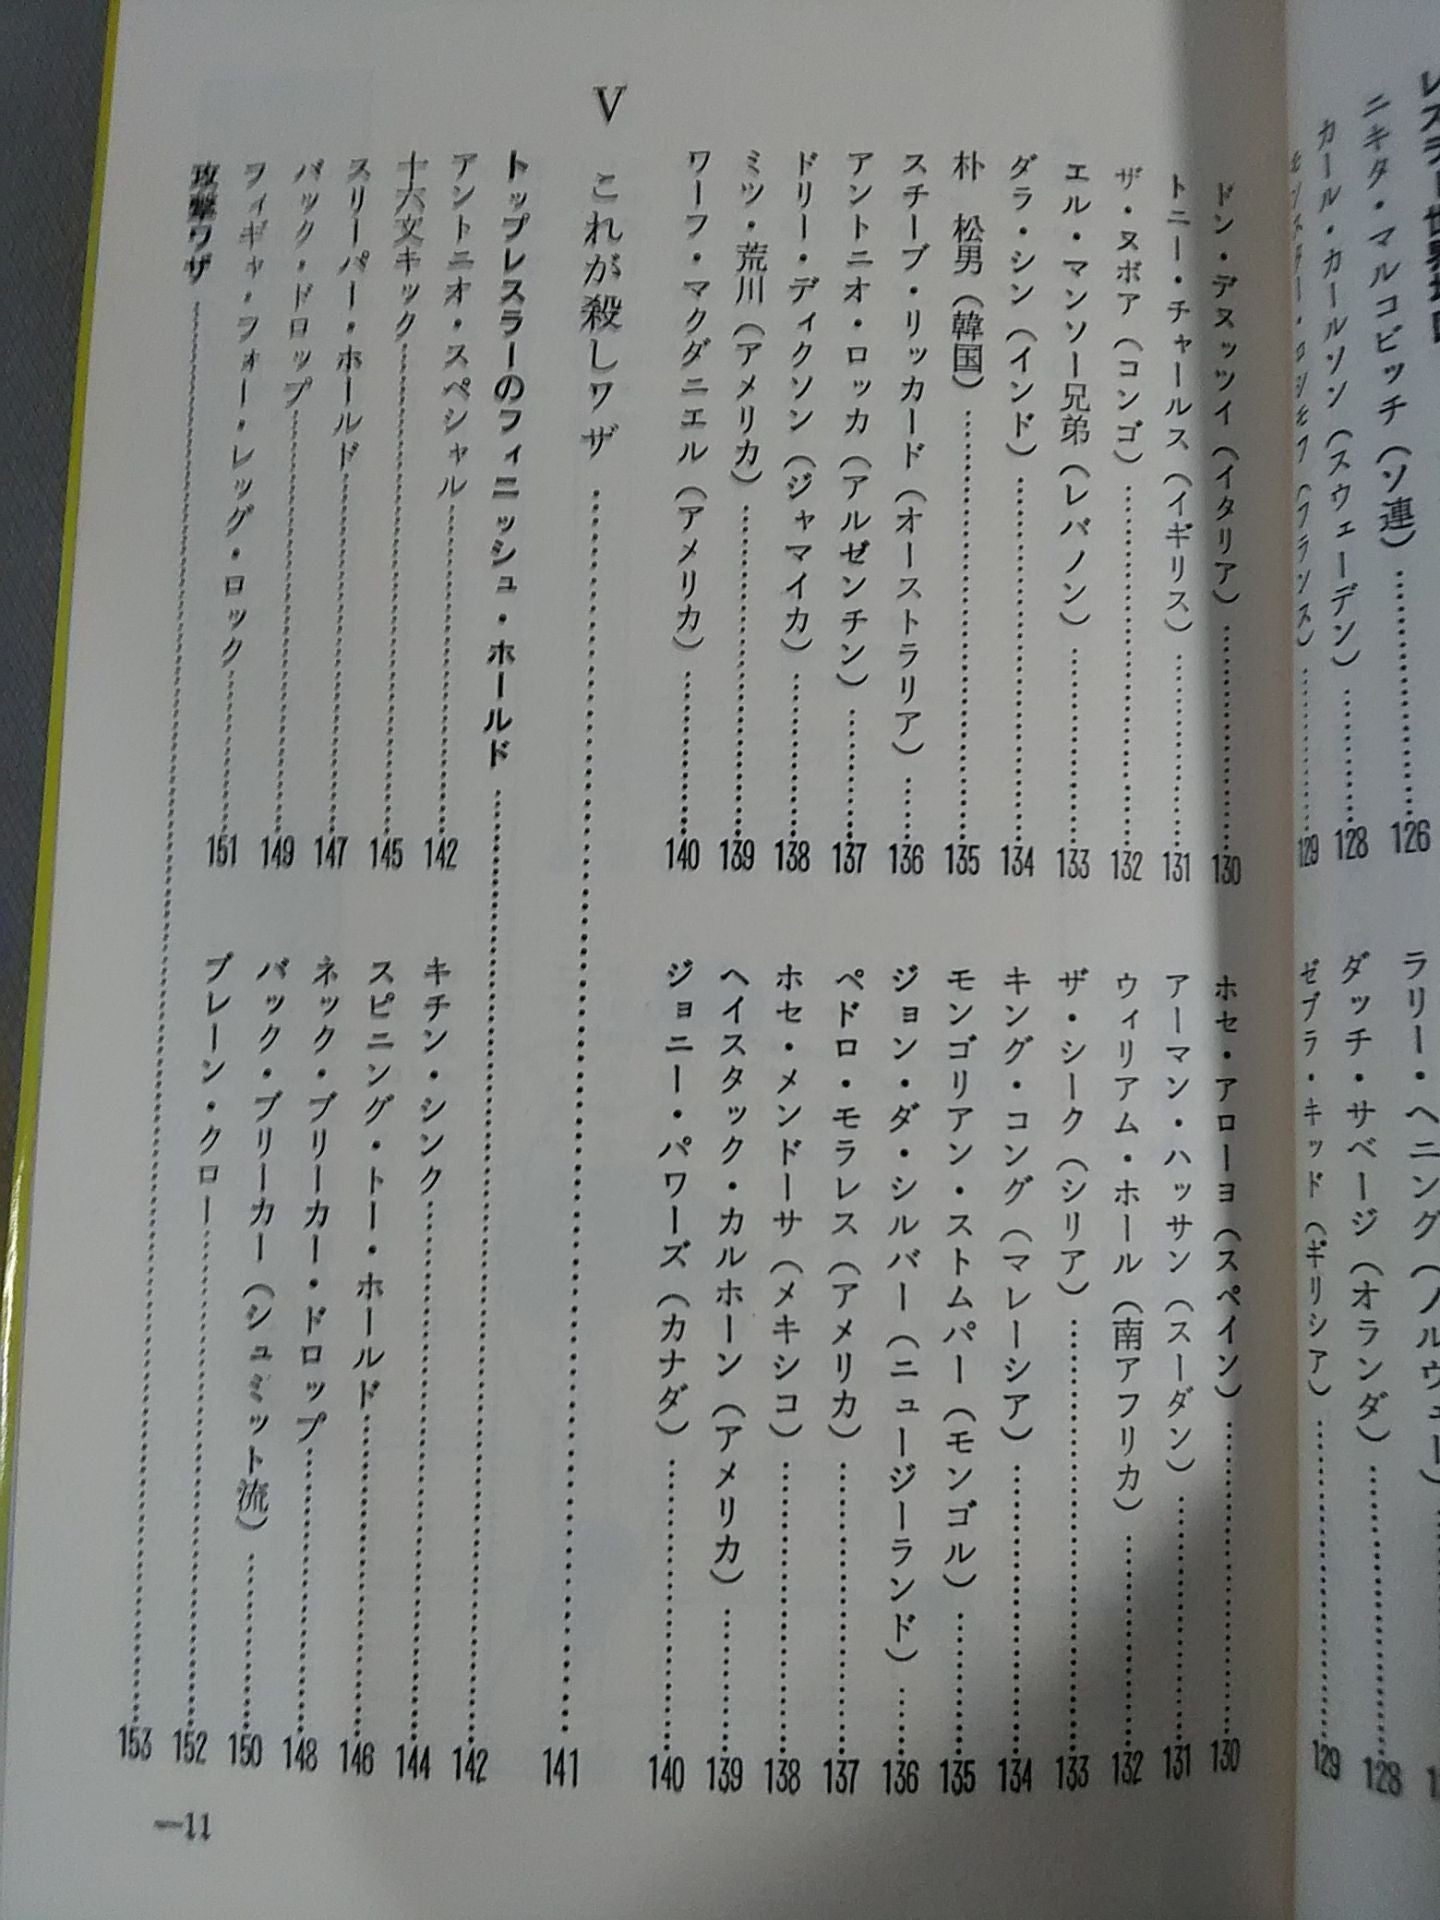 ニキタ・マルコビッチ（ソ連）……126
カール・カールソン（スウェーデン）……128
ダッチ・サベージ（オランダ）……128
129
ゼブラ・キッド（ギリシア）……129
ドン・デヌッツイ（イタリア）……130
ホセ・アローヨ（スペイン）……130
トニー・チャールス（イギリス）……131
アーマン・ハッサン（スーダン）……131
ザ・ヌボア（コンゴ）……132
ウィリアム・ホール（南アフリカ）……132
エル・マンソー兄弟（レバノン）……133
ザ・シーク（シリア）……133
ダラ・シン（インド）……134
キング・コング（マレーシア）……134
朴　松男（韓国）……135
モンゴリアン・ストムパー（モンゴル）……135
スチーブ・リッカード（オーストラリア）……136
ジョン・ダ・シルバー（ニュージーランド）……136
アントニオ・ロッカ（アルゼンチン）……137
ペドロ・モラレス（アメリカ）……137
ドリー・ディクソン（ジャマイカ）……138
ホセ・メンドーサ（メキシコ）……138
ミツ・荒川（アメリカ）……139
ヘイスタック・カルホーン（アメリカ）……139
ワーフ・マクダニエル（アメリカ）……140
ジョニー・パワーズ（カナダ）……140
V　これが殺しワザ……141
トップレスラーのフィニッシュ・ホールド……142
アントニオ・スペシャル……142
キチン・シンク……144
十六文キック……145
スピニング・トー・ホールド……146
スリーパー・ホールド……147
ネック・ブリーカー・ドロップ……148
バック・ドロップ……149
バック・ブリーカー（シュミット流）……150
フィギャ・フォー・レッグ・ロック……151
ブレーン・クロー……152
攻撃ワザ……153
—11